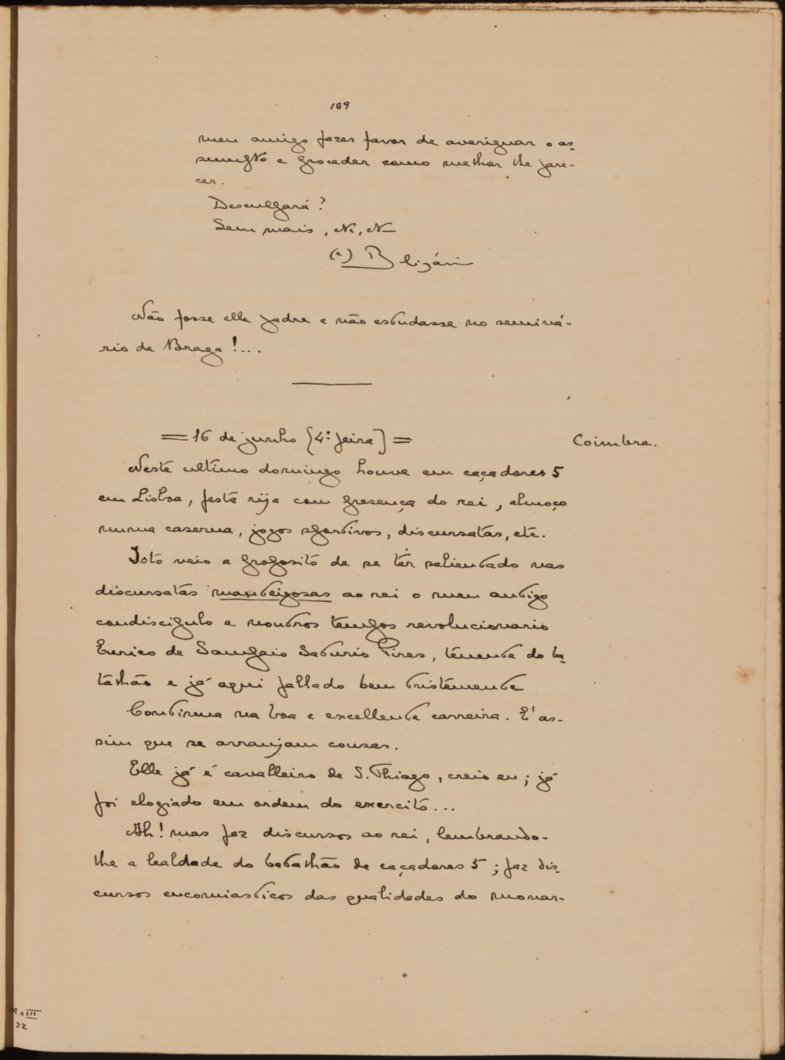 169
meu amigo fazer favor de averiguar o as-
sumpto e proceder como melhor lhe pare-
cer.
Desculpará?
Sem mais, N, N
(a) Belizário
Não fosse elle padre e não estudasse no seminá-
rio de Braga!...
= 16 de junho (4.ª feira) =
Coimbra.
Neste ultimo domingo houve em caçadores 5
em Lisboa, festa rija com presença do rei, almoço
numa caserna, jogos sportivos, discursatas, etc.
Isto veio a proposito de se ter salientado nas
discursatas manteigosas ao rei o meu antigo
condiscipulo e noutros tempos revolucionario
Eurico de Sampaio Saturio Pires, tenente do ba-
talhão e já aqui fallado bem tristemente
Continua na boa e excellente carreira. E' as-
sim que se arranjam cousas.
Elle já é cavalleiro de S. Thiago, creio eu; já
foi elogiado em ordem do exercito...
Ah! mas faz discursos ao rei, lembrando-
lhe a lealdade do batalhão de caçadores 5; faz dis-
cursos encomiasticos das qualidades do monar-
M=III
22